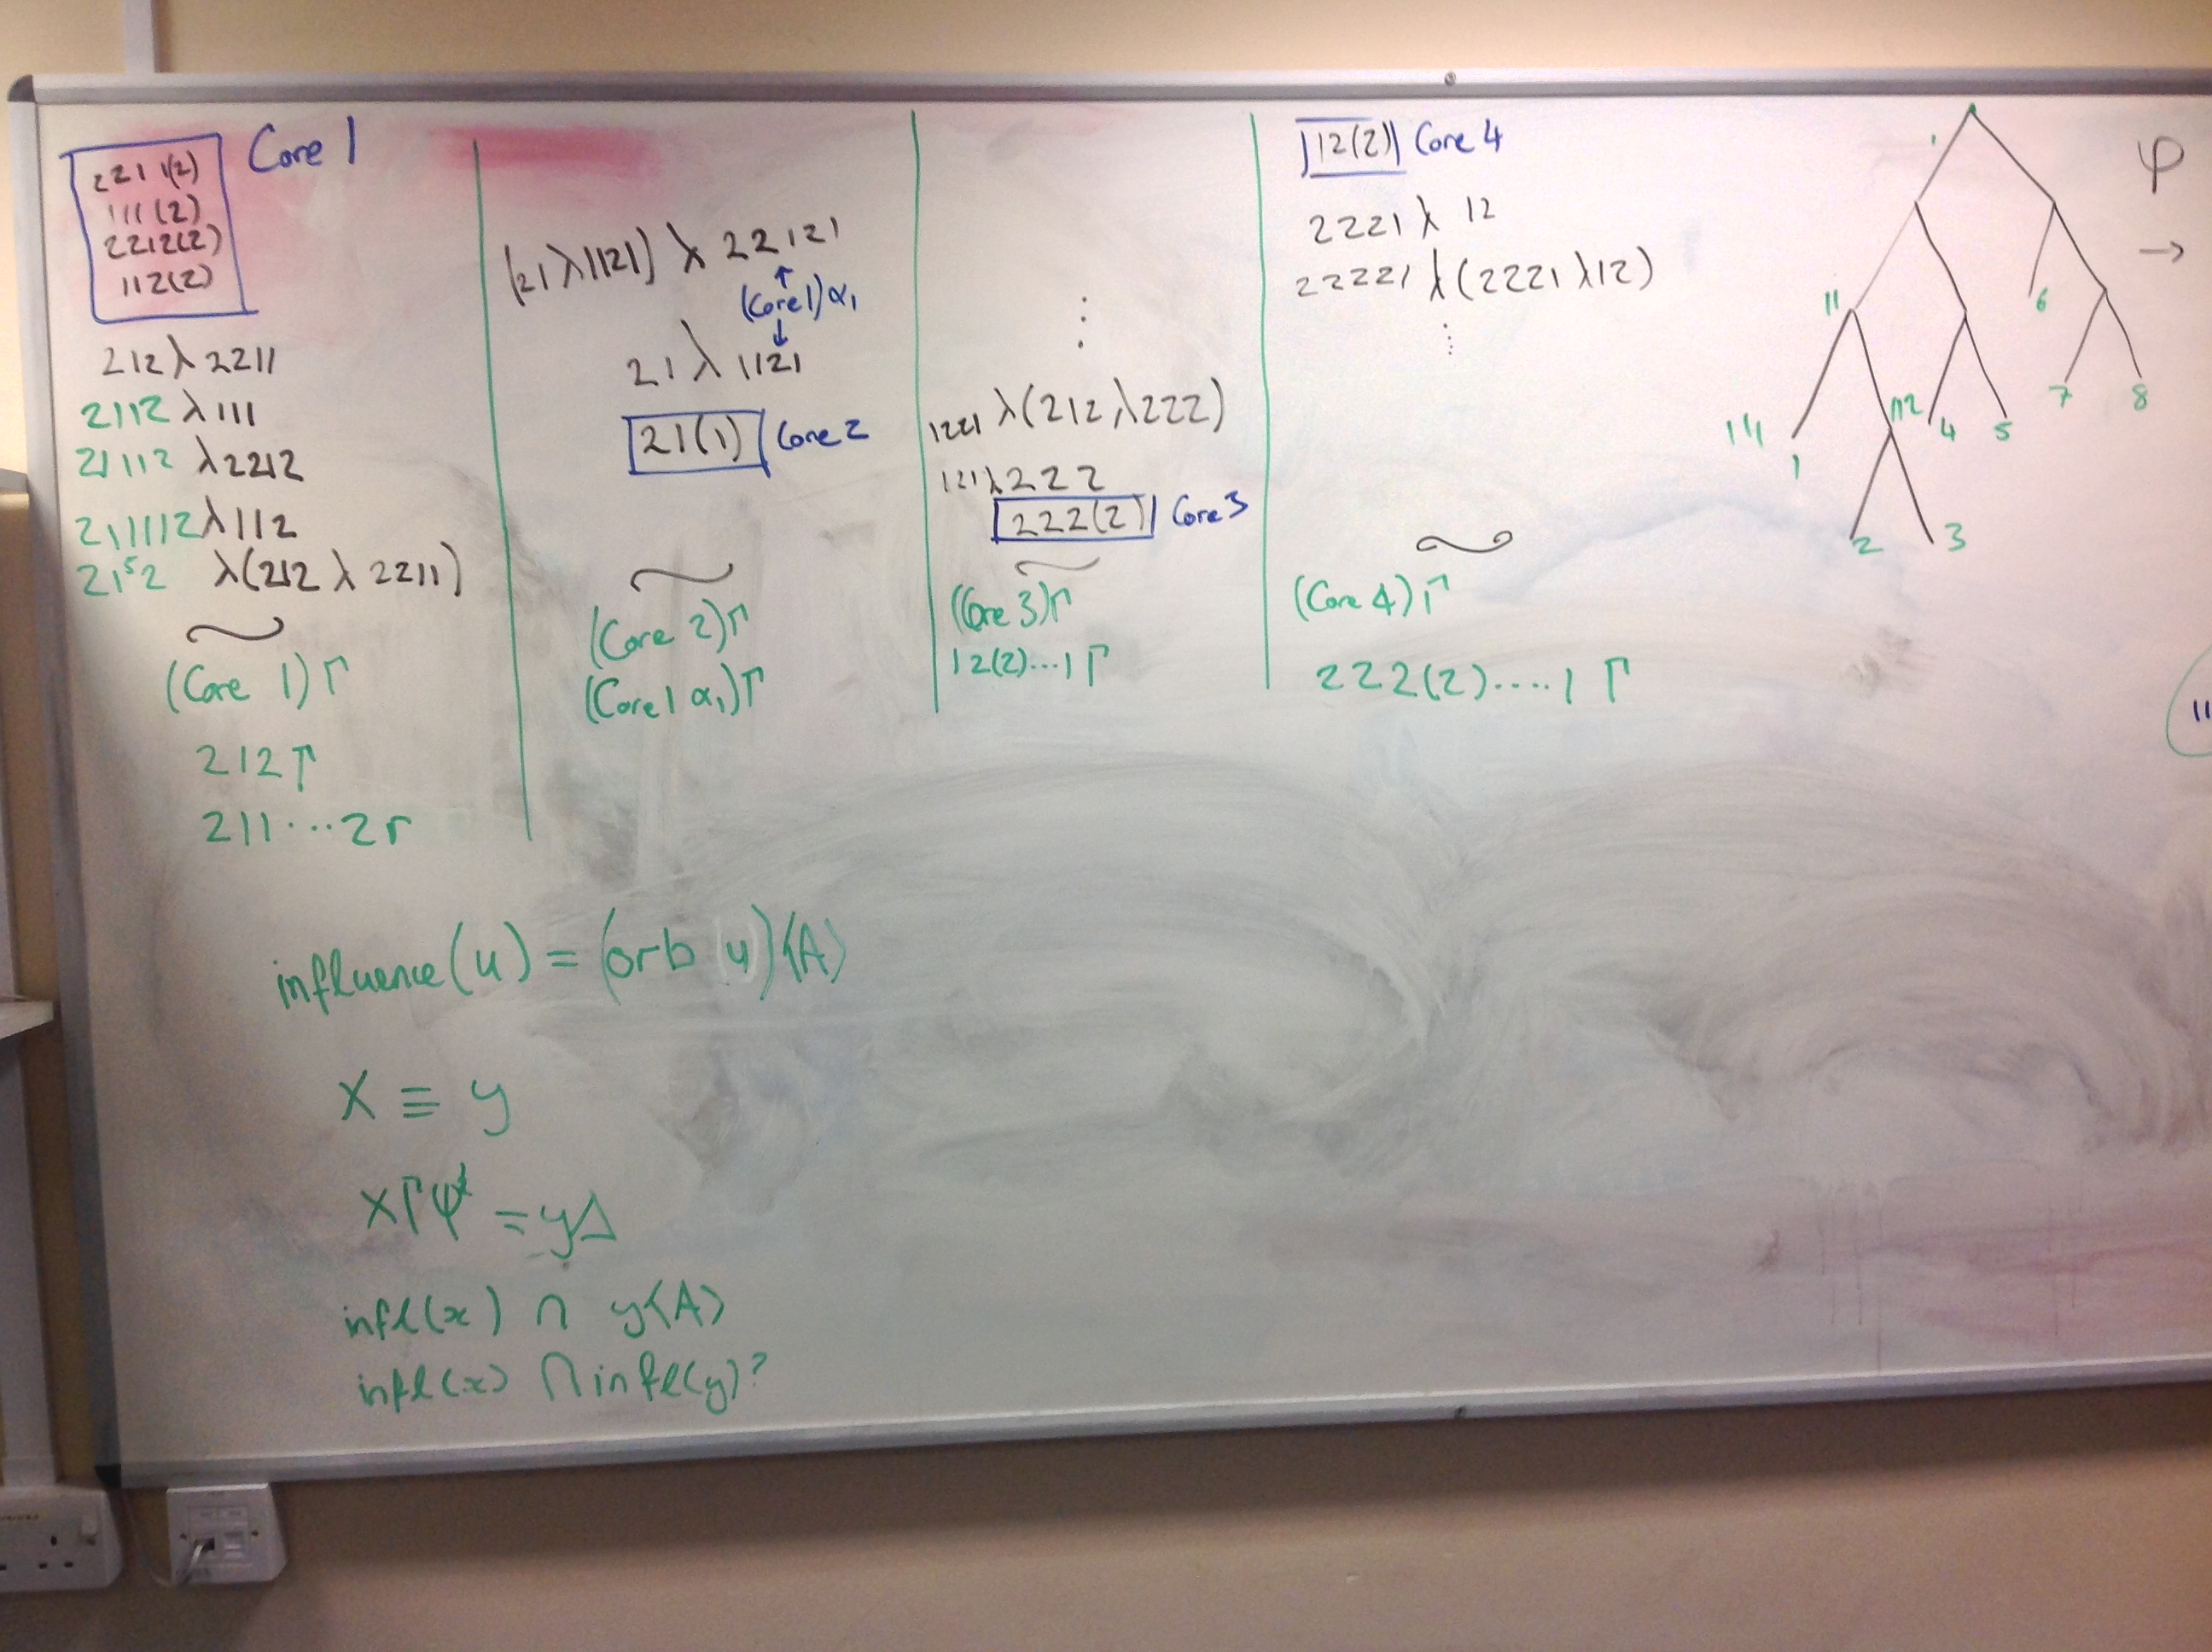 Core 1
2211(2)
111(2)
2212(2)
112(2)
212 λ 2211
2112 λ 111
21112 λ 2212
211112 λ 112
21⁵2 λ(212 λ 2211)
(Core 1)Γ
212Γ
211...2Γ
(21 λ 1121) λ 22121
↑
(Core 1)α₁
↓
21 λ 1121
21(1) Core 2
(Core 2)Γ
(Core 1 α₁)Γ
⋮
1221 λ(212 λ 222)
121 λ 222
222(2) Core 3
(Core 3)Γ
12(2)...1 Γ
12(2) Core 4
2221 λ 12
22221 λ (2221 λ 12)
⋮
(Core 4)Γ
222(2)....1 Γ
φ
→
1
11
111
112
1
2
3
4
5
6
7
8
11
influence(u) = (orb u)⟨A⟩
x ≡ y
xΓφᵗ = yΔ
infl(x) ∩ y⟨A⟩
infl(x) ∩ infl(y)?